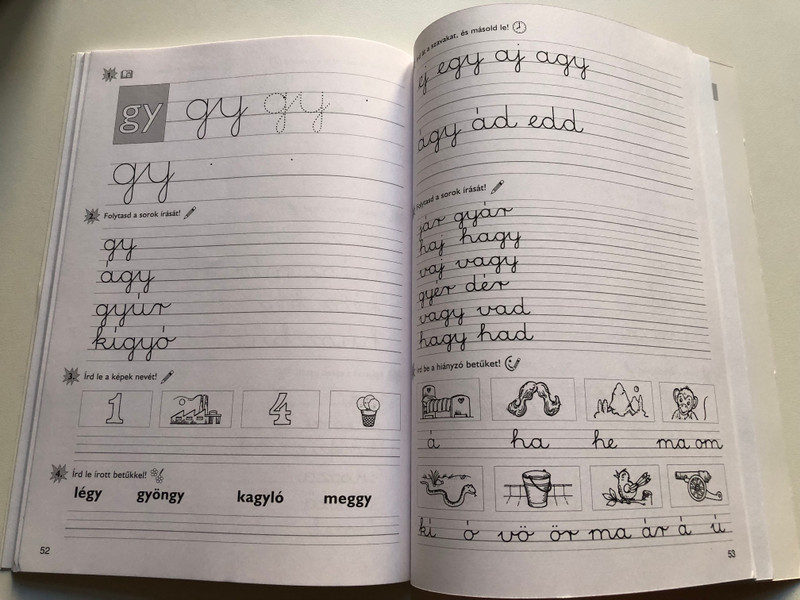 1
gy gy gy
gy
2 Folytasd a sorok írását!
gy
ágy
gyúr
kígyó
3 Írd le a képek nevét!
1 4
4 Írd le írott betűkkel!
légy gyöngy kagyló meggy
52
a szavakat, és másold le!
ej egy aj agy
ágy ád edd
Folytasd a sorok írását!
jár gyár
haj hagy
vaj vagy
gyér dér
vagy vad
hagy had
Írd be a hiányzó betűket!
á ha he ma om
kí ó vö ör ma ár á ú
53